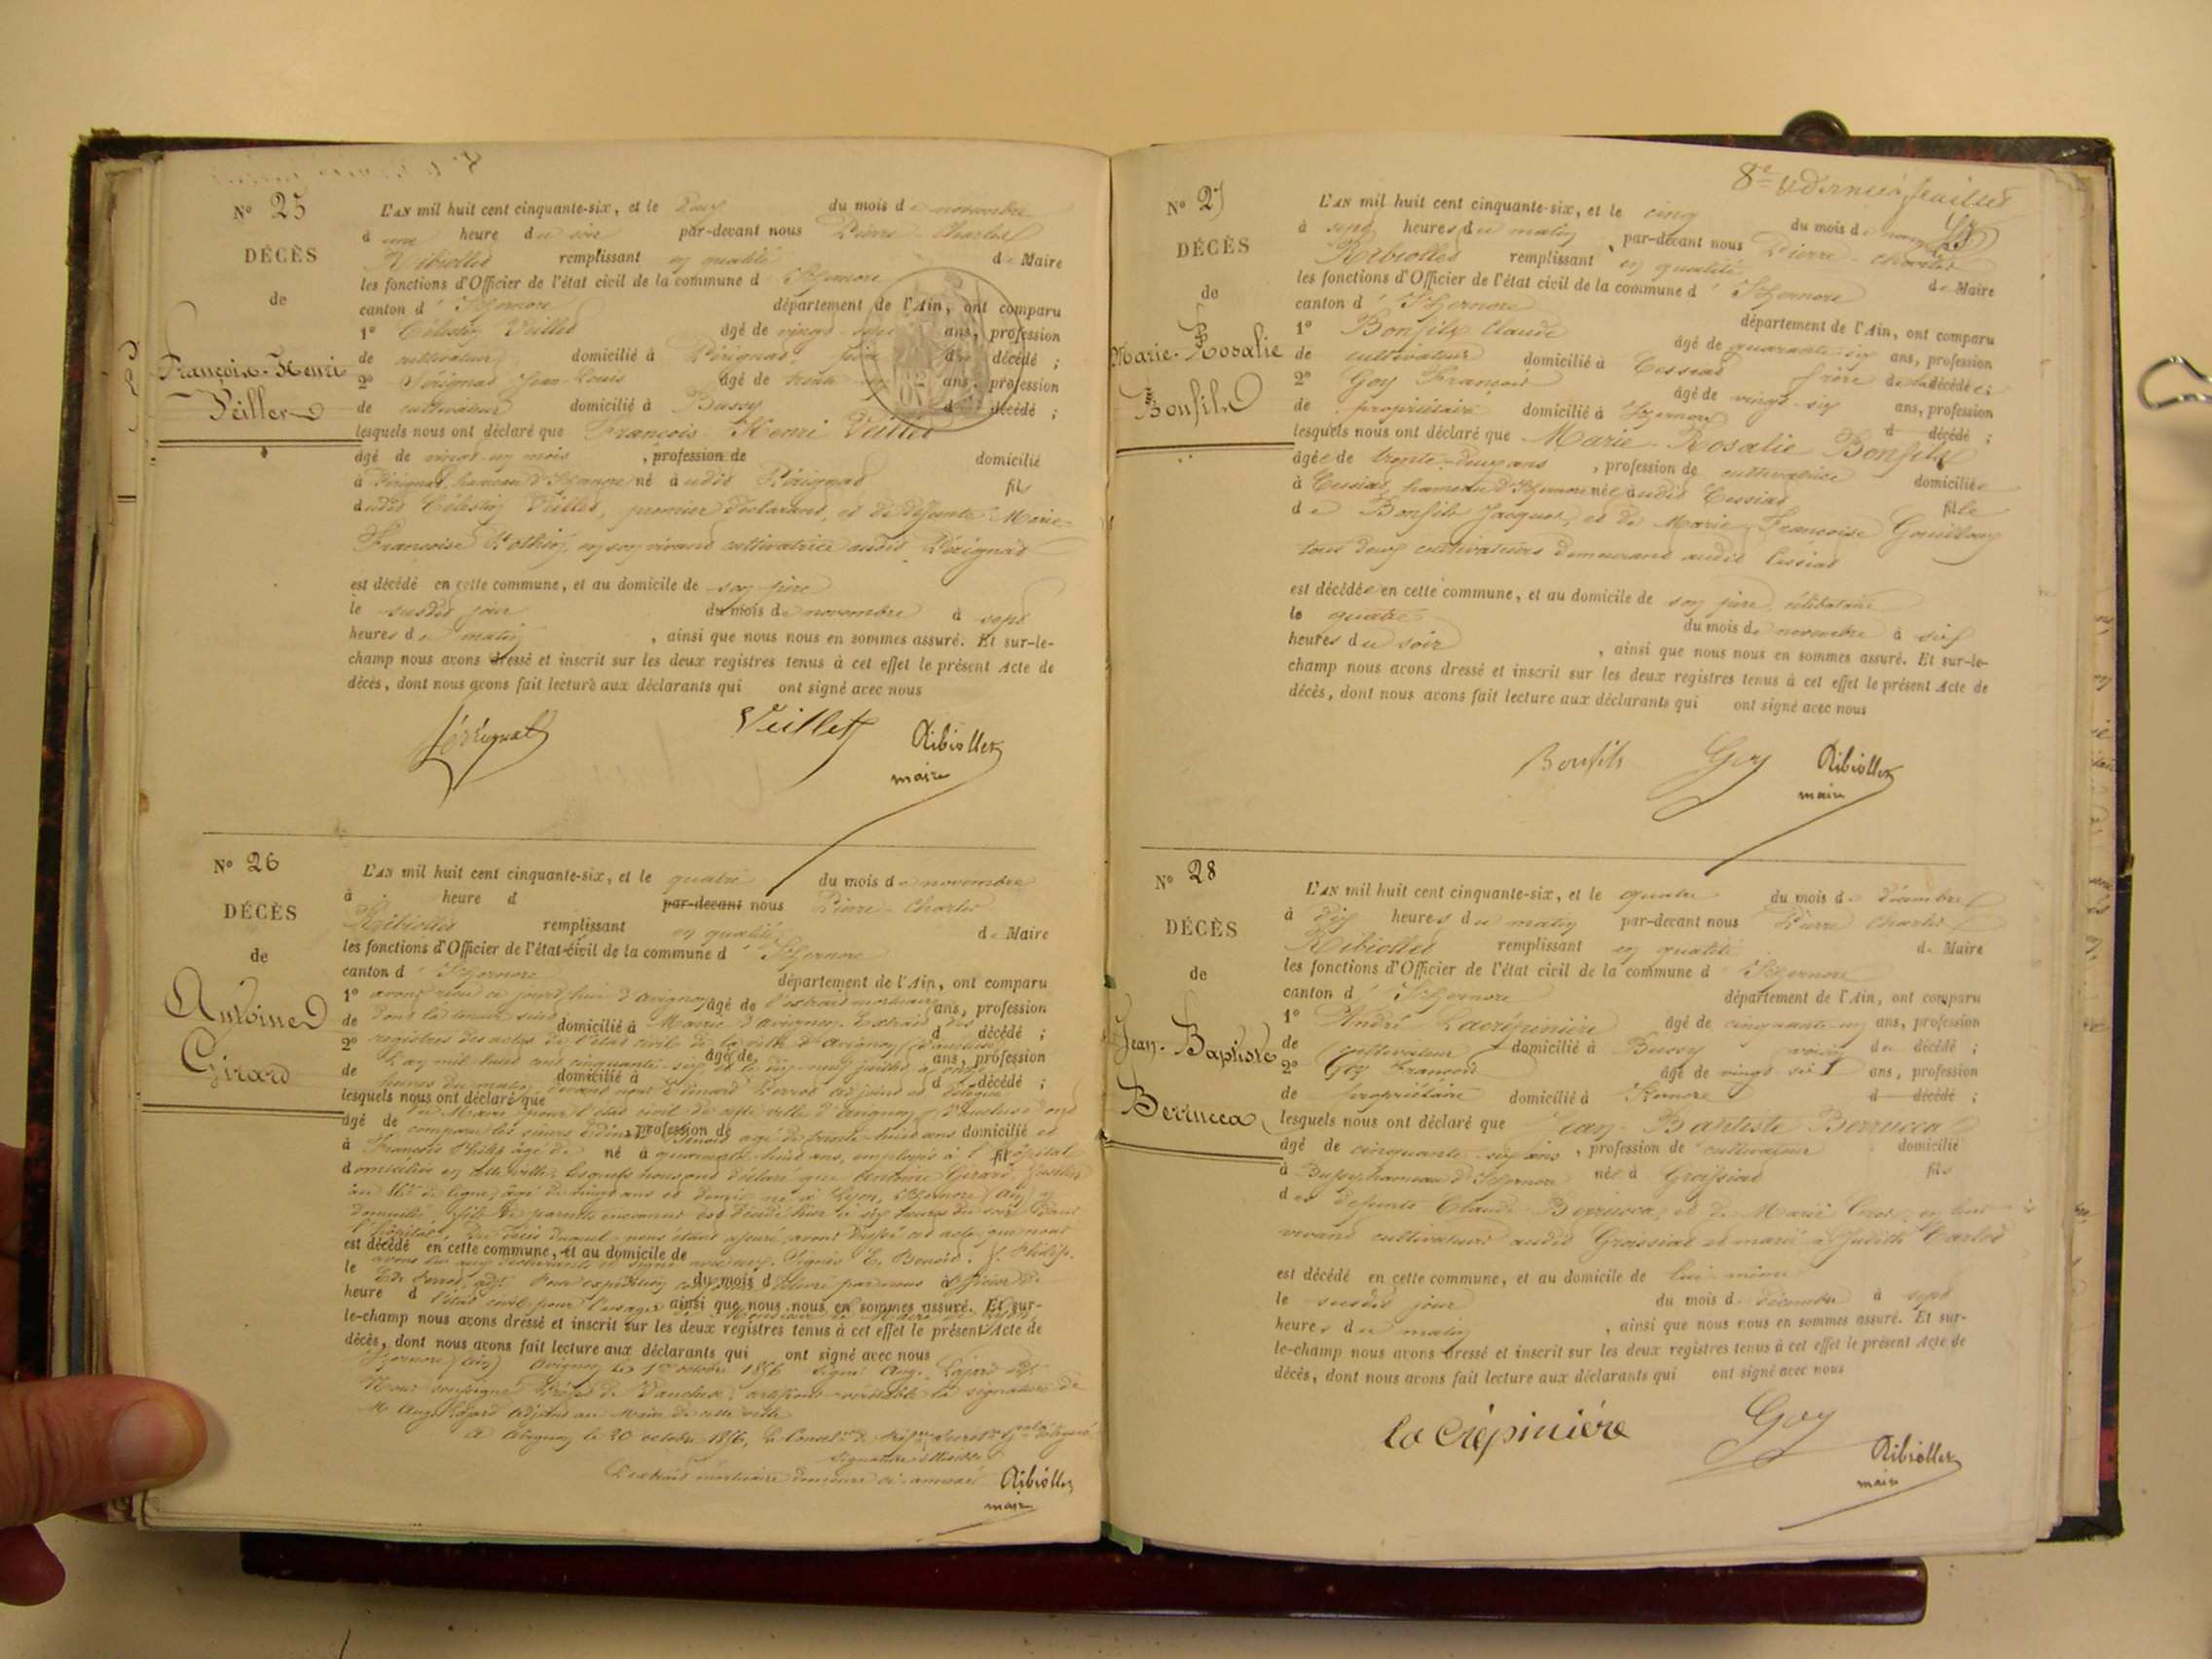 N° 25
DÉCÈS
de
François-Henri
Veillet
L'AN mil huit cent cinquante-six, et le deux du mois de novembre
à une heure du soir par-devant nous Pierre-Charles
Ribiollet remplissant en qualité de Maire
les fonctions d'Officier de l'état civil de la commune d'Izernore
canton d'Izernore département de l'Ain, ont comparu
1° Célestin Veillet âgé de vingt-sept ans, profession
de cultivateur domicilié à Pérignat, père du décédé ;
2° Pérignat Jean-Louis âgé de trente ans, profession
de cultivateur domicilié à Bussy d décédé ;
lesquels nous ont déclaré que François Henri Veillet
âgé de vingt-un mois , profession de domicilié
à Pérignat, hameau d'Izernore né audit Pérignat fils
dudit Célestin Veillet, premier déclarant, et de défunte Marie-
Françoise en son vivant cultivatrice audit Pérignat
est décédé en cette commune, et au domicile de son père
le susdit jour du mois de novembre à sept
heures du matin , ainsi que nous nous en sommes assuré. Et sur-le-
champ nous avons dressé et inscrit sur les deux registres tenus à cet effet le présent Acte de
décès, dont nous avons fait lecture aux déclarants qui ont signé avec nous
Pérignat Veillet Ribiollet
maire
N° 26
DÉCÈS
de
Antoine
Girard
L'AN mil huit cent cinquante-six, et le quatre du mois de novembre
à heure d par-devant nous Pierre-Charles
Ribiollet remplissant en qualité de Maire
les fonctions d'Officier de l'état civil de la commune d'Izernore
canton d'Izernore département de l'Ain, ont comparu
1° avons reçu ce jourd'hui d'Avignon âgé de l'extrait mortuaire ans, profession
de dont la teneur suit domicilié à Mairie d'Avignon. Extrait des d décédé ;
2° registres des actes de l'état civil de la ville d'Avignon (Vaucluse)
L'an mil huit cent cinquante-six et le dix-neuf juillet à onze âgé de ans, profession
de heures du matin, domicilié à devant nous Edouard Verrot adjoint et délégué d décédé ;
lesquels nous ont déclaré que
du Maire pour l'état civil de cette ville d'Avignon (Vaucluse) ont
âgé de comparu les sieurs profession de Benoit âgé de trente-huit ans domicilié et
à François Philip âgé de né à quarante-huit ans, employés à l'hôpital fil
domiciliés en cette ville, lesquels nous ont déclaré que Antoine Girard fusilier
au de ligne, âgé de vingt ans et demi né à Izernore (Ain) y
domicilié fils de parents inconnus est décédé hier à six heures du soir dans
l'hôpital, du décès duquel nous étant assuré avons dressé cet acte que nous
est décédé en cette commune, et au domicile de
avons lu aux déclarants et signé avec eux. Signés E. Benoit. f. Philip.
le Ed. Verrot, adjt. Pour expédition conforme du mois d délivré par nous à officier de
heure d l'état civil pour l'usage , ainsi que nous nous en sommes assuré. Et sur-
le-champ nous avons dressé et inscrit sur les deux registres tenus à cet effet le présent Acte de
décès, dont nous avons fait lecture aux déclarants qui ont signé avec nous
Izernore (Ain) Avignon le 1er octobre 1856 Signé Aug.
Nous soussigné Préfet de Vaucluse, certifions véritable la signature de
M. Aug. adjoint au Maire de cette ville
A Avignon le 20 octobre 1856, Le Conseiller de
Signature illisible
L'extrait mortuaire demeure ci-annexé Ribiollet
maire
8e & dernier feuillet
N° 27
DÉCÈS
de
Marie-Rosalie
Bonfils
L'AN mil huit cent cinquante-six, et le cinq du mois de
à sept heures du matin , par-devant nous Pierre-Charles
Ribiollet remplissant en qualité de Maire
les fonctions d'Officier de l'état civil de la commune d'Izernore
canton d'Izernore département de l'Ain, ont comparu
1° Bonfils Claude âgé de quarante-six ans, profession
de cultivateur domicilié à Cessiat frère de la décédée ;
2° Goy François âgé de vingt-six ans, profession
de propriétaire domicilié à Izernore d décédé ;
lesquels nous ont déclaré que Marie-Rosalie Bonfils
âgée de trente-deux ans , profession de cultivatrice domiciliée
à Cessiat, hameau d'Izernore née audit Cessiat fille
de Bonfils Jacques, et de Marie Françoise
tous deux cultivateurs demeurant audit Cessiat
est décédée en cette commune, et au domicile de son père célibataire
le quatre du mois de novembre à six
heures du soir , ainsi que nous nous en sommes assuré. Et sur-le-
champ nous avons dressé et inscrit sur les deux registres tenus à cet effet le présent Acte de
décès, dont nous avons fait lecture aux déclarants qui ont signé avec nous
Bonfils Goy Ribiollet
maire
N° 28
DÉCÈS
de
Jean-Baptiste
Berrucca
L'AN mil huit cent cinquante-six, et le quatre du mois de décembre
à dix heures du matin par-devant nous Pierre Charles
Ribiollet remplissant en qualité de Maire
les fonctions d'Officier de l'état civil de la commune d'Izernore
canton d'Izernore département de l'Ain, ont comparu
1° André Lacrépinière âgé de cinquante-un ans, profession
de cultivateur domicilié à Bussy voisin du décédé ;
2° Goy François âgé de vingt-six ans, profession
de propriétaire domicilié à Izernore d décédé ;
lesquels nous ont déclaré que Jean-Baptiste Berrucca
âgé de cinquante-six ans , profession de cultivateur domicilié
à Bussy, hameau d'Izernore né à Groissiat fils
des défunts Claude Berrucca, et de Marie en leur
vivant cultivateurs audit Groissiat et marié à Judith Carlod
est décédé en cette commune, et au domicile de lui-même
le susdit jour du mois de décembre à sept
heures du matin , ainsi que nous nous en sommes assuré. Et sur-
le-champ nous avons dressé et inscrit sur les deux registres tenus à cet effet le présent Acte de
décès, dont nous avons fait lecture aux déclarants qui ont signé avec nous
la Crépinière Goy Ribiollet
maire